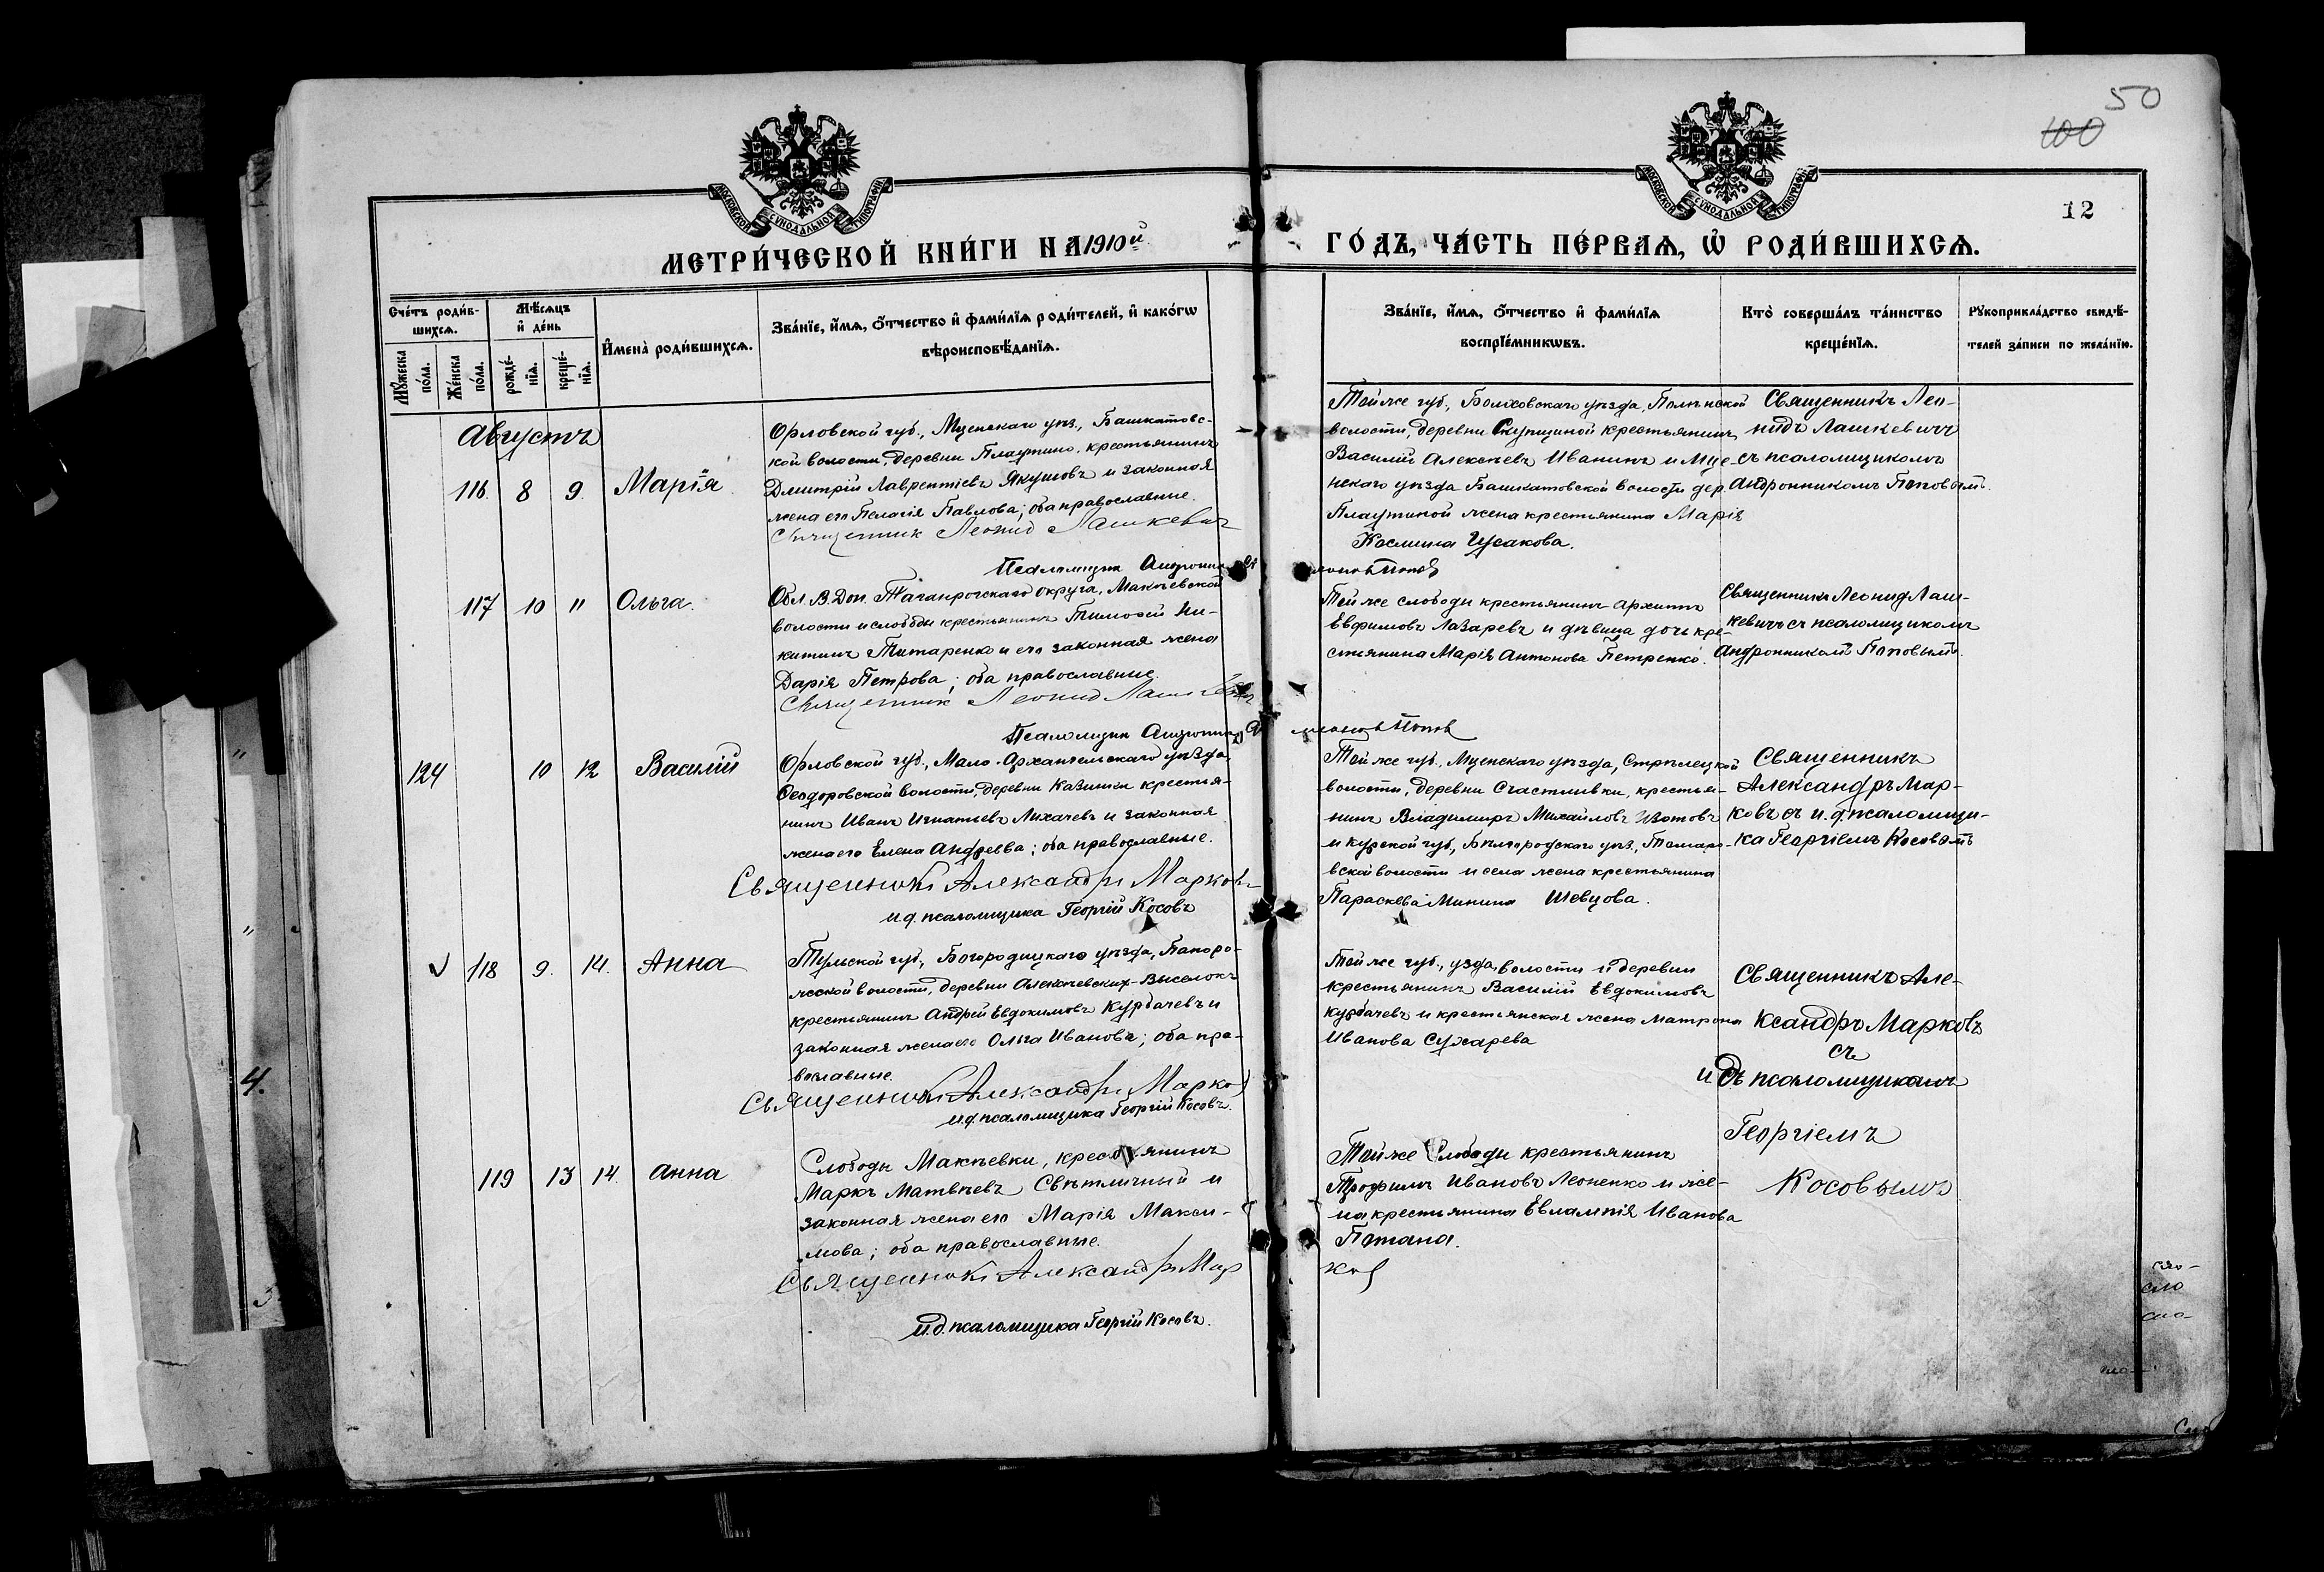 50
100
12
МОСКОВСКОЙ СѴНОДАЛЬНОЙ ТИПОГРАФІИ
МОСКОВСКОЙ СѴНОДАЛЬНОЙ ТИПОГРАФІИ
МЕТРИ́ЧЕСКОЙ КНИ́ГИ НА 1910й
ГО́ДЪ, ЧА́СТЬ ПЕ́РВАѦ, Ѡ҆ РОДИ́ВШИХСѦ.
Сче́тъ роди́в-
шихсѧ.
Мꙋ́жеска
по́ла.
Же́нска
по́ла.
Мѣ́сѧцъ
и҆ де́нь
рожде́-
нїѧ.
креще́-
нїѧ.
И҆мена̀ роди́вшихсѧ.
Зва́нїе, и҆́мѧ, ѻ҆́тчество и҆ фами́лїѧ роди́телей, и҆ како́гѡ
вѣроисповѣ́данїѧ.
Зва́нїе, и҆́мѧ, ѻ҆́тчество и҆ фами́лїѧ
воспрїе́мникѡвъ.
Кто̀ соверша́лъ та́инство
креще́нїѧ.
Рꙋкоприкла́дство свидѣ́-
телей за́писи по жела́нїю.
Августъ
116. 8 9. Марія
Орловской губ., Мценскаго уѣз., Башкатовс-
кой волости, деревни Плаутино, крестьянинъ
Дмитрій Лаврентіевъ Якушовъ и законная
жена его Пелагія Павлова; оба православные.
Священник Леонид Лашкевич
Псаломщик Андроник
Попов
Той же губ., Болховскаго уѣзда,
волости, деревни Скупщиной крестьянинъ
Василій Алексѣевъ Иванинъ и Мце-
нскаго уѣзда Башкатовской волости дер.
Плаутиной жена крестьянина Марія
Космина Гусакова.
Священникъ Лео-
нидъ Лашкевичъ
съ псаломщикомъ
Андронникомъ Поповымъ.
117 10 11 Ольга.
Обл. В. Дон. Таганрогскаго округа, Макѣевской
волости и слободы крестьянинъ Тимофей Ни-
китинъ Титаренко и его законная жена
Дарія Петрова; оба православные.
Священник Леонид Лашкевич
Псаломщик Андроник
Попов
Той же слободы крестьянинъ Архипъ
Евфимовъ Лазаревъ и дѣвица дочь кре-
стьянина Марія Антонова Петренко.
Священникъ Леонид Лаш-
кевичъ съ псаломщикомъ
Андронникомъ Поповымъ.
124 10 12 Василій
Орловской губ., Мало-Архангельскаго уѣзда,
Ѳеодоровской волости, деревни Казинки крестья-
нинъ Иванъ Игнатьевъ Лихачевъ и законная
жена его Елена Андреева; оба православные.
Священникъ Александръ Марковъ
и.д. псаломщика Георгій Косовъ
Той же губ., Мценскаго уѣзда, Стрѣлецкой
волости, деревни Счастливки, крестья-
нинъ Владимиръ Михайловъ Изотовъ
и Курской губ., Бѣлгородскаго уѣз., Томаро-
вской волости и села жена крестьянина
Параскева Минина Шевцова.
Священникъ
Александръ Мар-
ковъ съ и.д. псаломщи-
ка Георгіемъ Косовымъ
118 9. 14. Анна
Тульской губ., Богородицкаго уѣзда, Папоро-
жской волости, деревни Алексѣевских-Выселокъ
крестьянинъ Андрей Евдокимовъ Курбачевъ и
законная жена его Ольга Иванова; оба пра-
вославные.
Священникъ Александръ Марков
и.д. псаломщика Георгій Косовъ.
Той же губ., узда, волости и деревни
крестьянинъ Василій Евдокимовъ
Курбачевъ и крестьянская жена Матрона
Иванова Сухарева
Священникъ Але-
ксандръ Марковъ
съ
и д псаломщикомъ
Георгіемъ
Косовымъ
119 13 14. Анна
Слободы Макѣевки, крестьянинъ
Маркъ Матвѣевъ Свѣтличный и
законная жена его Марія Макси-
мова; оба православные.
Священникъ Александръ Мар
ков
и.д. псаломщика Георгій Косовъ.
Той же Слободы крестьянинъ
Трофимъ Ивановъ Леоненко и же-
на крестьянина Евлампія Иванова
4.
3